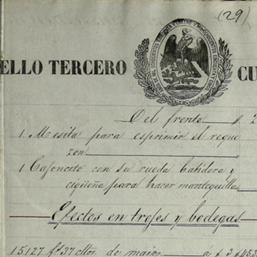 (29)
ELLO TERCERO CU
Del frente $ 2
1 Mesita para esprimir el reque
son
1 Cajoncito con su rueda batidora y
cigüeña para hacer mantequilla
Efectos en trojes y bodegas
15127 fs 37 cllos de maiz á $ 2